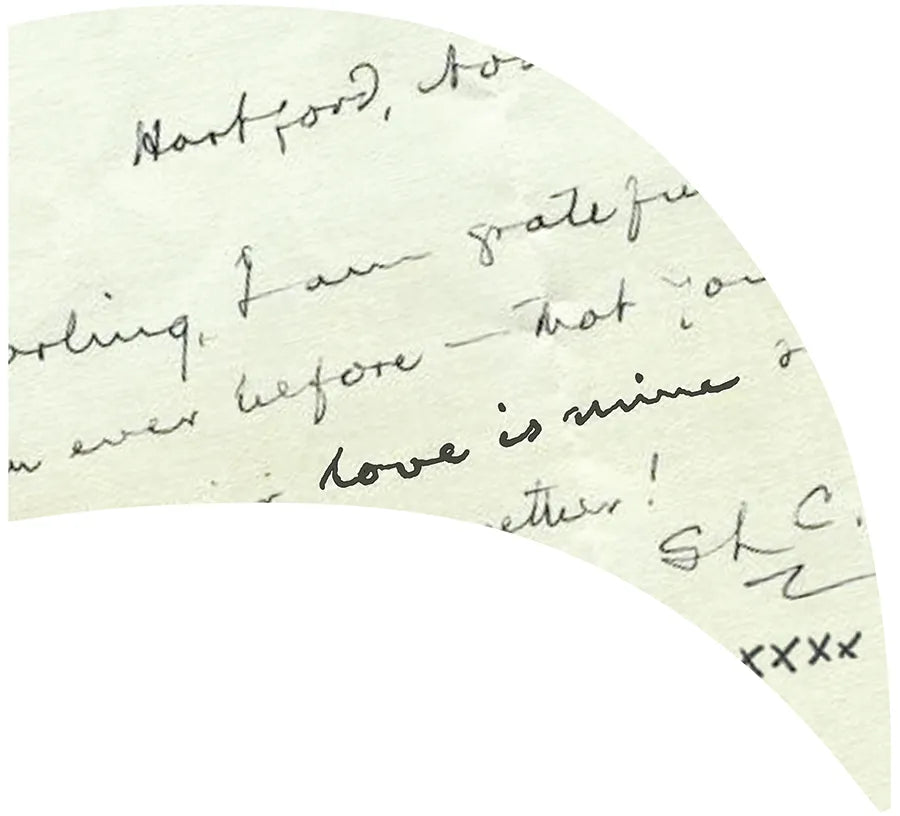 Hartford, Nov
arling, I am gratefu
ever before — that you
love is mine
ether!
SLC.
xxxx